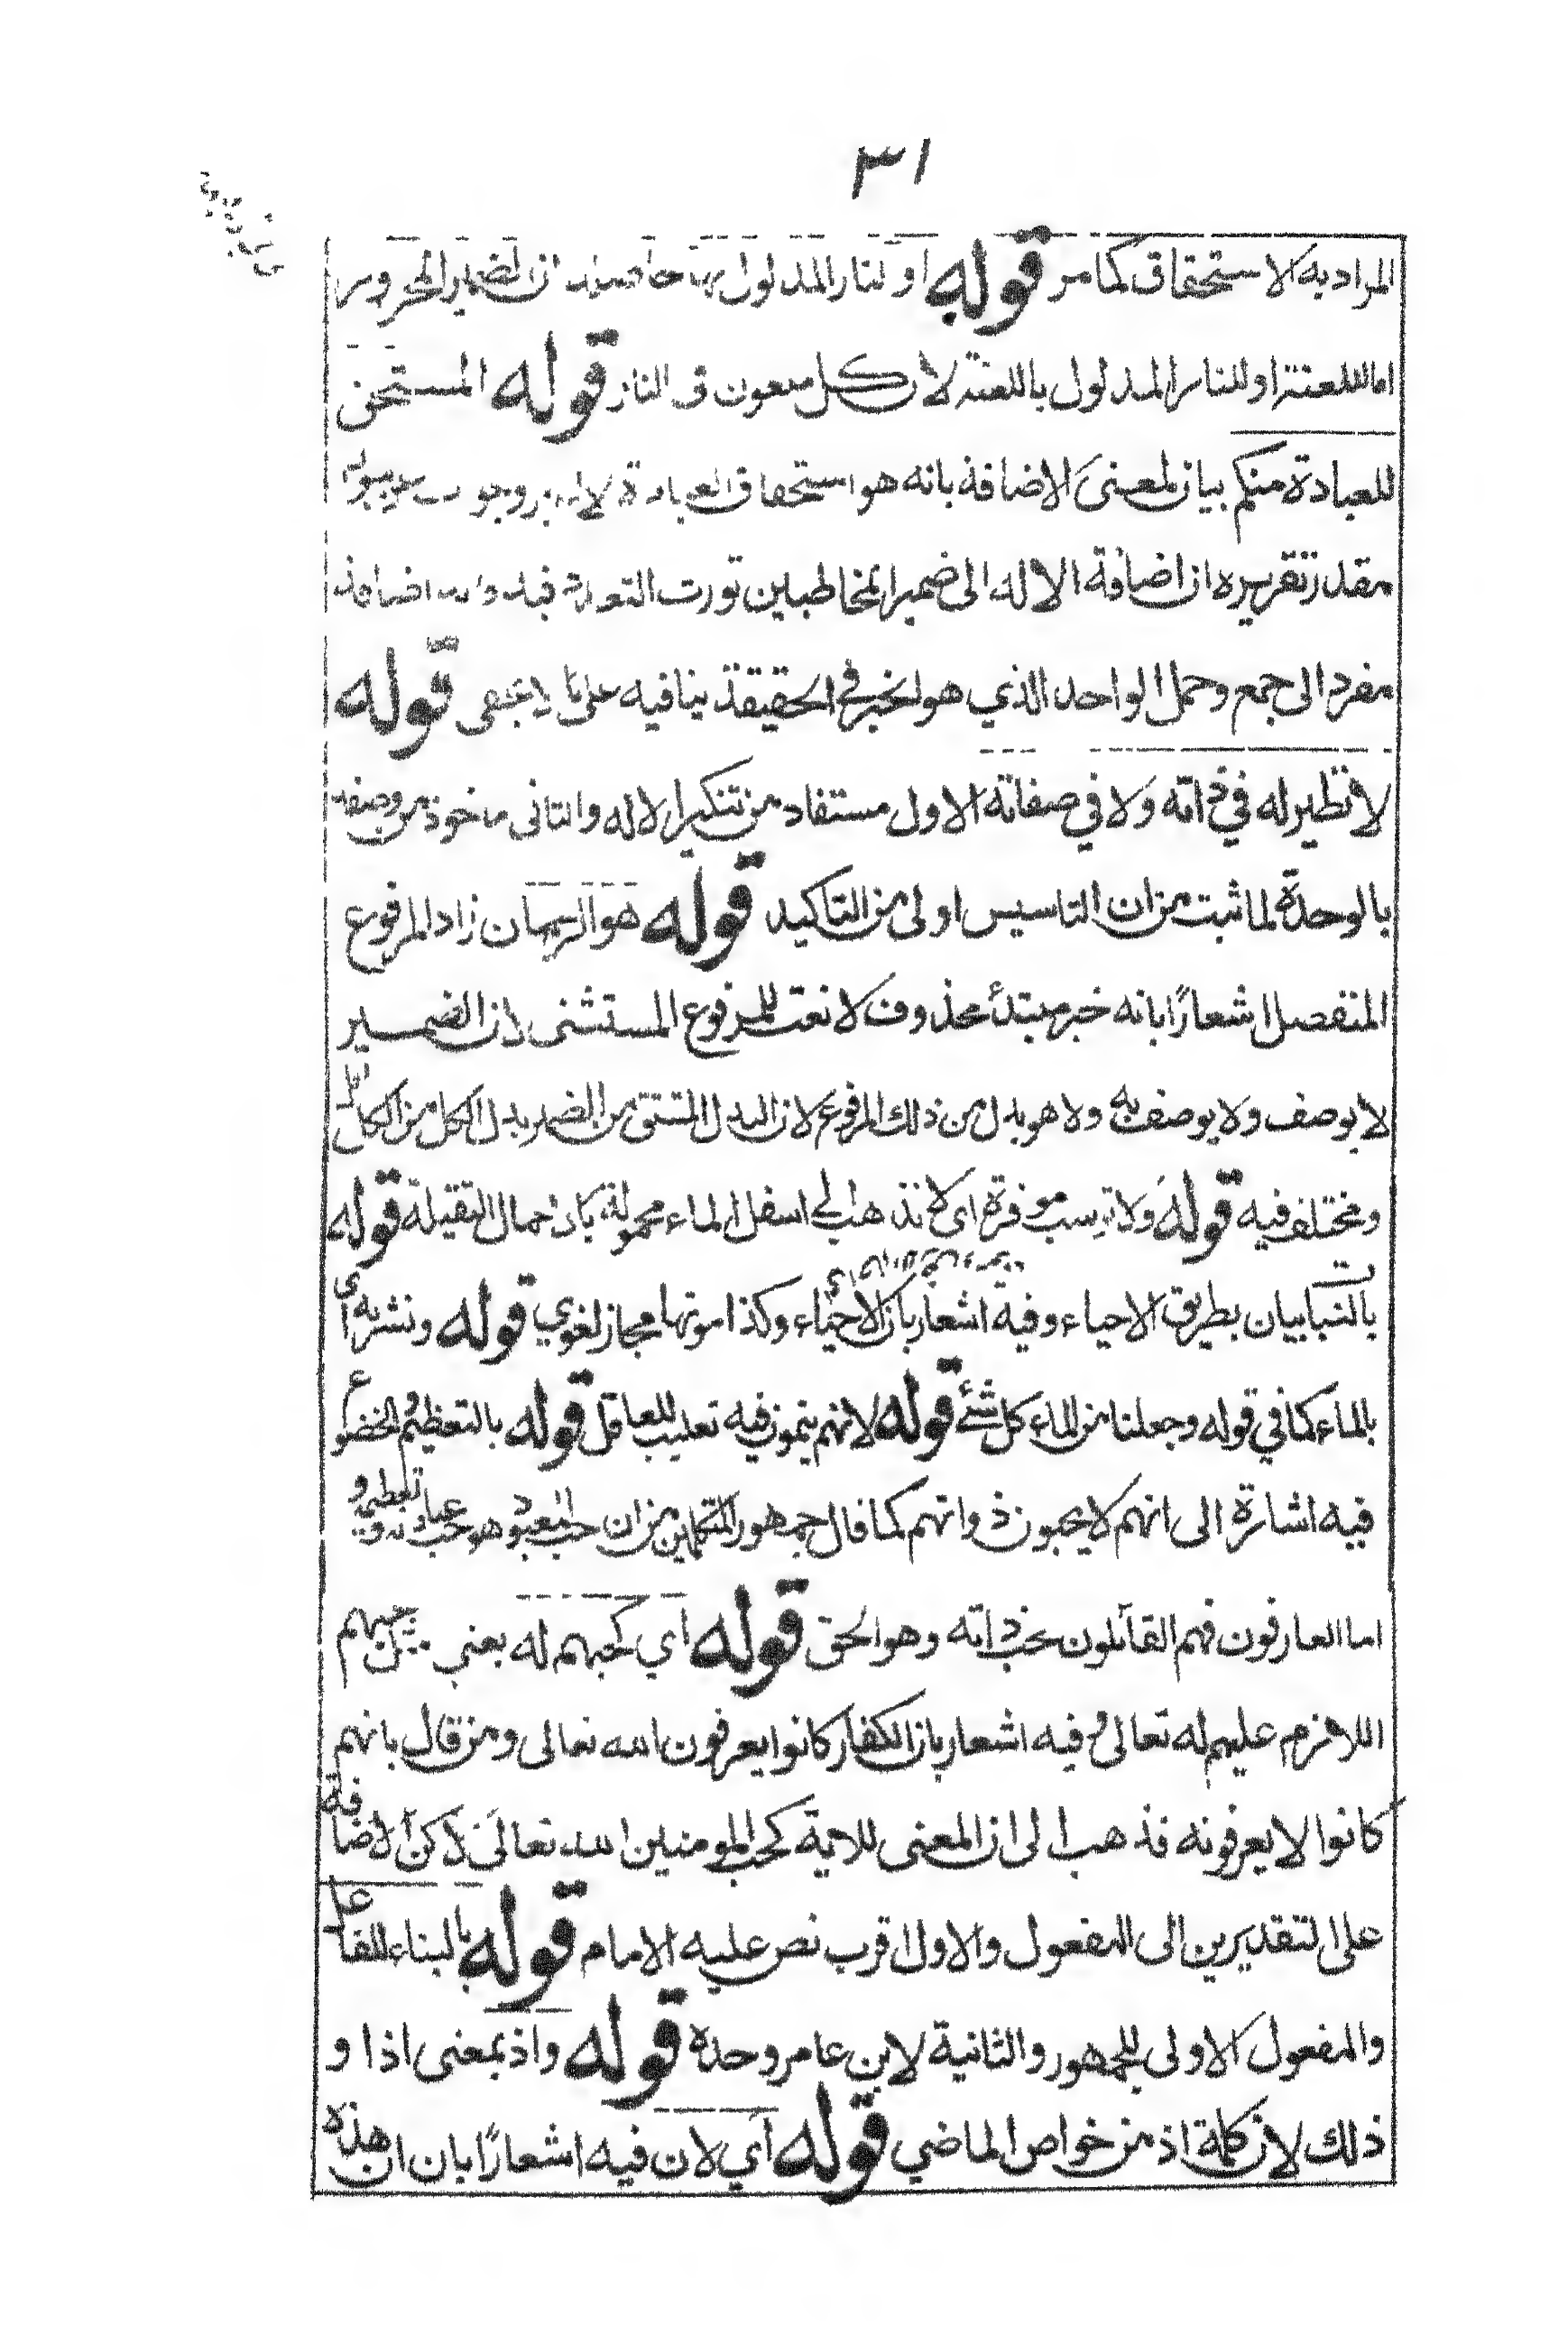 ٣١
المراد به الاستحقاق كما مر قوله او النار المدلول بها حاصله ان الضمير المجرور
اما للعنة او للنار المدلول باللعنة لان كل ملعون فى النار قوله المستحق
للعبادة منكم بيان لمعنى الاضافة بانه هو استحقاق العبادة لا
مقدر تقريره ان اضافة الاله الى ضمير المخاطبين تورث التعدد فيه اضافة
مفرد الى جمع وحمل الواحد الذي هو الخبر في الحقيقة ينافيه على ما لا يخفى قوله
لا نظير له في ذاته ولا في صفاته الاول مستفاد من تنكير الاله والثانى ماخوذ من وصفه
بالوحدة لما ثبت من ان التاسيس اولى من التاكيد قوله هو الرحمان زاد المرفوع
المنفصل اشعارًا بانه خبر مبتدأ محذوف لا نعت للمرفوع المستثنى لان الضمير
لا يوصف ولا يوصف به ولا هو بدل من ذلك المرفوع لان البدل المستثنى من الضمير بدل الكل من الكل
ومختلف فيه قوله ولا ترسب موفرة اى لا تذهب الى اسفل الماء محمولة بالاحمال الثقيلة قوله
بالنبات بيان بطريق الاحياء وفيه اشعار بان الاحياء وكذا موتها مجاز لغوي قوله ونشر به اى
بالماء كما في قوله وجعلنا من الماء كل شئ قوله لانهم ينمون فيه تغليب للعاقل قوله بالتعظيم والخضوع
فيه اشارة الى انهم لا يحبون ذواتهم كما قال جمهور المتكلمين من ان حب المعبود هو حب عبادته وتعظيمه
اما العارفون فهم القائلون بحب ذاته وهو الحق قوله اي كحبهم له يعني حبهم
اللازم عليهم له تعالى و فيه اشعار بان الكفار كانوا يعرفون الله تعالى ومن قال بانهم
كانوا لا يعرفونه فذهب الى ان المعنى للاية كحب المومنين الله تعالى لكن الاضافة
على التقديرين الى المفعول والاول اقرب نص عليه الامام قوله بالبناء للفاعل
والمفعول الاولى للجمهور والثانية لابن عامر وحده قوله واذ بمعنى اذا و
ذلك لان كلمة اذ من خواص الماضي قوله اي لان فيه اشعارًا بان ان هذه